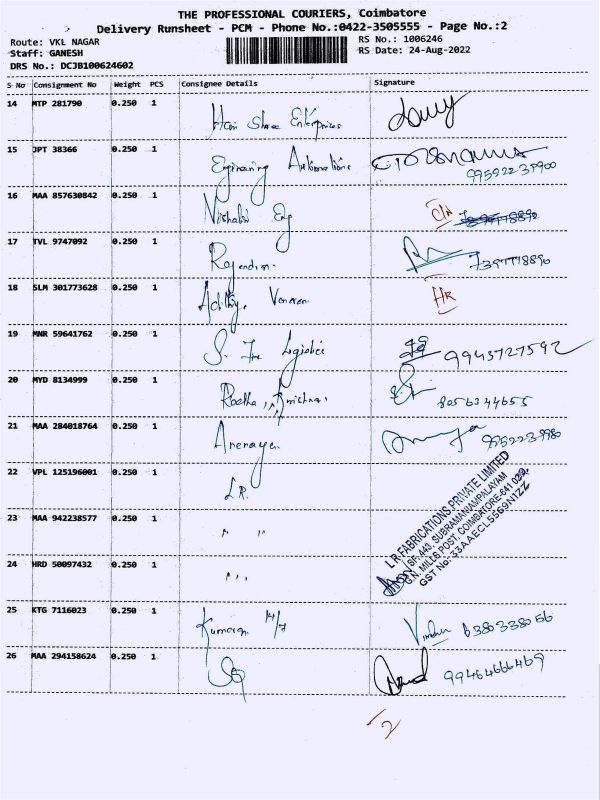 THE PROFESSIONAL COURIERS, Coimbatore
Delivery Runsheet - PCM - Phone No.:0422-3505555 - Page No.:2
Route: VKL NAGAR RS No.: 1006246
Staff: GANESH RS Date: 24-Aug-2022
DRS No.: DCJB100624602
S No Consignment No Weight PCS Consignee Details Signature
14 MTP 281790 0.250 1
Hari Shree Enterprises
15 JPT 38366 0.250 1
Engineering Automations
16 MAA 857630842 0.250 1
Vishalini Eng
17 TVL 9747092 0.250 1
Rajendran 7397778890
18 SLM 301773628 0.250 1
HR
19 MNR 59641762 0.250 1
S. Logistics 9943727592
20 MYD 8134999 0.250 1
Raetha Krishna 8056344655
21 MAA 284018764 0.250 1
22 VPL 125196001 0.250 1
L.R.
L.R FABRICATIONS PRIVATE LIMITED
SF:443, SUBRAMANIAMPALAYAM
G.N. MILLS POST, COIMBATORE-641 029.
GST No: 33AAECL5569N1ZZ
23 MAA 942238577 0.250 1
" "
24 HRD 50097432 0.250 1
25 KTG 7116023 0.250 1
Kumaran 14/7 6380338056
26 MAA 294158624 0.250 1
99464666469
2